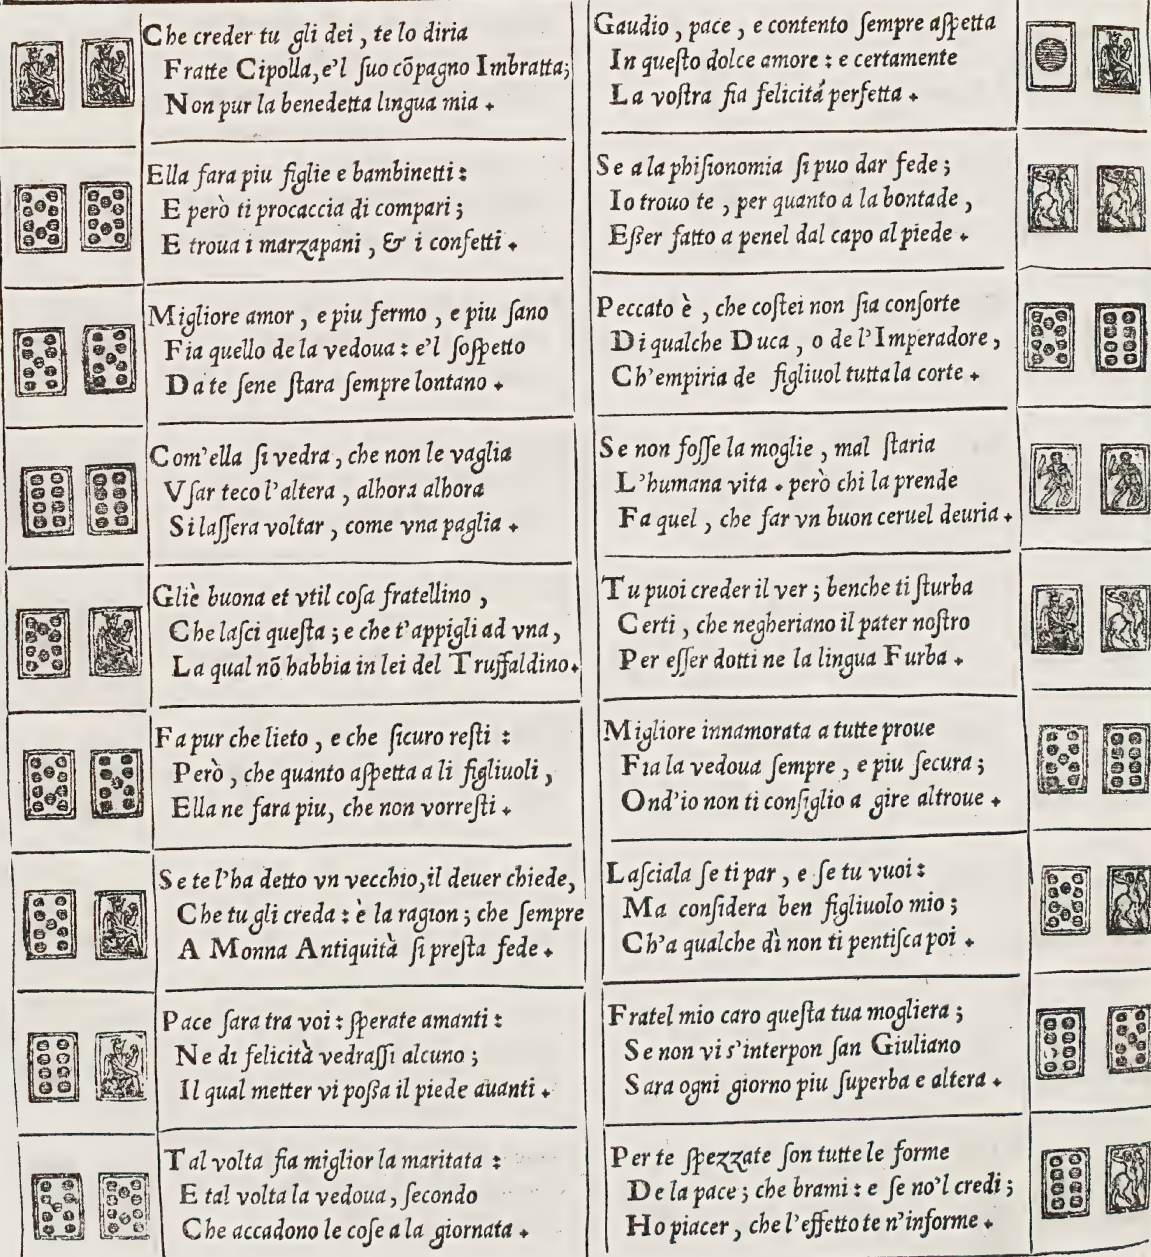 Che creder tu gli dei, te lo diria
Fratte Cipolla, e'l ſuo cõpagno Imbratta;
Non pur la benedetta lingua mia.
Ella fara piu figlie e bambinetti:
E però ti procaccia di compari;
E troua i marzapani, & i confetti.
Migliore amor, e piu fermo, e piu ſano
Fia quello de la vedoua: e'l ſoſpetto
Da te ſene ſtara ſempre lontano.
Com'ella ſi vedra, che non le vaglia
Vſar teco l'altera, alhora alhora
Si laſſera voltar, come vna paglia.
Gliè buona et vtil coſa fratellino,
Che laſci queſta; e che t'appigli ad vna,
La qual nõ habbia in lei del Truffaldino.
Fa pur che lieto, e che ſicuro reſti:
Però, che quanto aſpetta a li figliuoli,
Ella ne fara piu, che non vorreſti.
Se te l'ha detto vn vecchio, il deuer chiede,
Che tu gli creda: è la ragion; che ſempre
A Monna Antiquità ſi preſta fede.
Pace ſara tra voi: ſperate amanti:
Ne di felicità vedraſſi alcuno;
Il qual metter vi poſſa il piede auanti.
Tal volta fia miglior la maritata:
E tal volta la vedoua, ſecondo
Che accadono le coſe a la giornata.
Gaudio, pace, e contento ſempre aſpetta
In queſto dolce amore: e certamente
La voſtra fia felicitá perfetta.
Se a la phiſionomia ſi puo dar fede;
Io trouo te, per quanto a la bontade,
Eſſer fatto a penel dal capo al piede.
Peccato è, che coſtei non ſia conſorte
Di qualche Duca, o de l'Imperadore,
Ch'empiria de figliuol tutta la corte.
Se non foſſe la moglie, mal ſtaria
L'humana vita. però chi la prende
Fa quel, che far vn buon ceruel deuria.
Tu puoi creder il ver; benche ti ſturba
Certi, che negheriano il pater noſtro
Per eſſer dotti ne la lingua Furba.
Migliore innamorata a tutte proue
Fia la vedoua ſempre, e piu ſecura;
Ond'io non ti conſiglio a gire altroue.
Laſciala ſe ti par, e ſe tu vuoi:
Ma conſidera ben figliuolo mio;
Ch'a qualche dì non ti pentiſca poi.
Fratel mio caro queſta tua mogliera;
Se non vi s'interpon ſan Giuliano
Sara ogni giorno piu ſuperba e altera.
Per te ſpezzate ſon tutte le forme
De la pace; che brami: e ſe no'l credi;
Ho piacer, che l'effetto te n'informe.